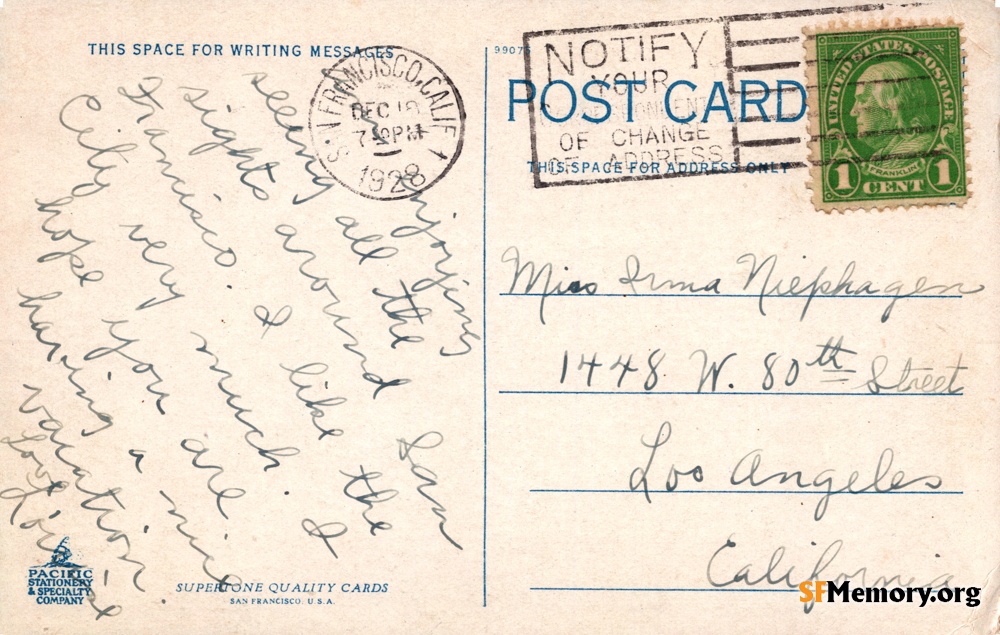 THIS SPACE FOR WRITING MESSAGES
enjoying
seeing all the
sights around San
Francisco. I like the
City very much. I
hope you are
having a nice
vacation.
Love
Louise
PACIFIC
STATIONERY
& SPECIALTY
COMPANY
SUPERTONE QUALITY CARDS
SAN FRANCISCO. U.S.A.
SAN FRANCISCO, CALIF. 1
DEC 18
PM
1928
NOTIFY
YOUR
CORRESPONDENTS
OF CHANGE
OF ADDRESS
POST CARD
THIS SPACE FOR ADDRESS ONLY
UNITED STATES POSTAGE
FRANKLIN
1 CENT 1
Miss Irma Niephagen
1448 W. 80th Street
Los Angeles
California
SFMemory.org